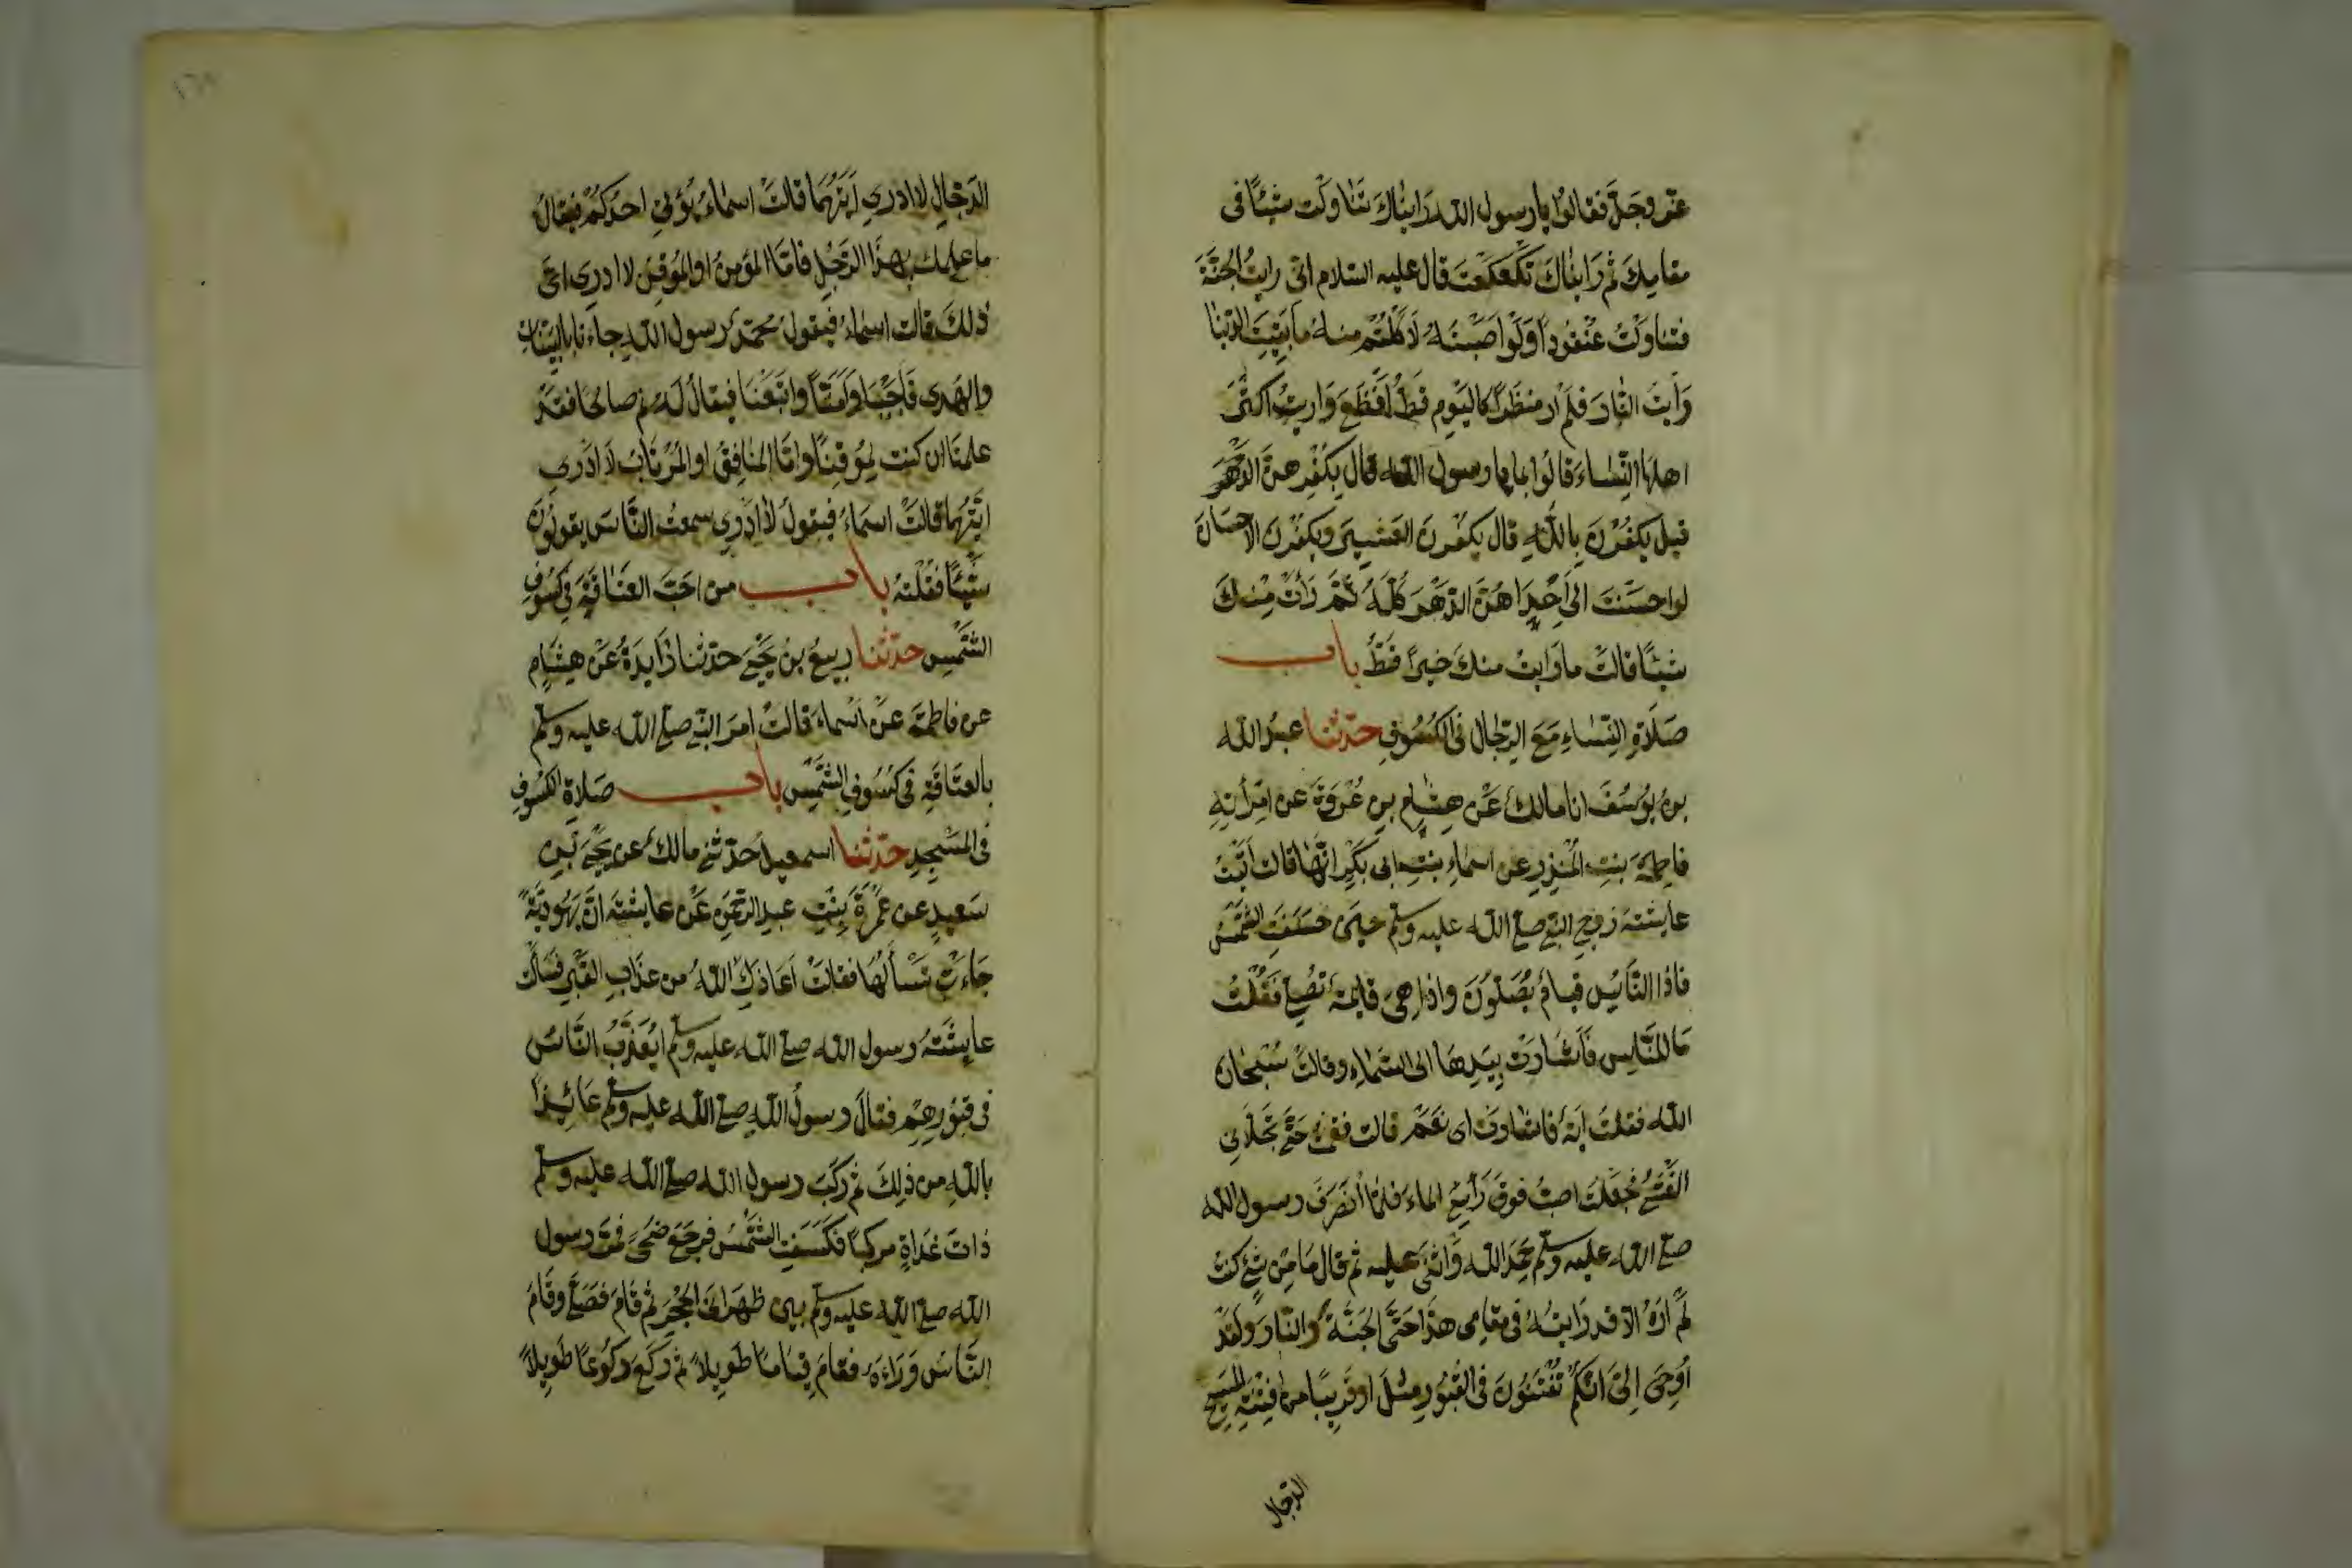 عز وجل فقالوا يا رسول الله رَايناكَ تَنَاولْت شيئًا فى
مقامِكَ ثم رَايناكَ تكَعكَعتَ قال عليه السّلام انّى رايتُ الجنَّةَ
فتناولْتُ عُنْقودًا ولَوْ اَصَبْتُهُ لَاَكلْتُمْ منه ما بقِيَتِ الدّنيا
وَاُرِيتُ النَّارَ فلَمْ ار منظَرًا كاليَوْم قَطُّ اَفْظَعَ وَرايتُ اكثَرَ
اهلهَا النِّساءَ قالوا بما يا رسول الله قال بكُفْرِهنَّ
قيل يكفُرْنَ بِاللهِ قال يكفُرنَ العَشيرَ ويكفُرْنَ الاحْسَانَ
لو احسَنتَ الى اِحْدٰاهُنَّ الدّهْرَ كُلَّهُ ثمَّ رَأتْ مِنْكَ
شيئًا قالتْ ما رَايتُ منكَ خيرًا قَطُّ باب
صَلَاةِ النِّسَاءِ مَعَ الرّجَال فى الكُسُوفِ حدّثنا عبدُ الله
بنُ يُوسُفَ انا مالكٌ عَنْ هِشَامِ بنِ عُرْوَةَ عن امْرَأتِهِ
فاطِمَةَ بنتِ المُنْذِرِ عن اسماءِ بنتِ ابى بَكْرٍ انَّهَا قالت اَتَيْتُ
عايشَةَ زوجِ النّبىّ صلى الله عليه وسلم حينَ خسَفَتِ الشّمْسُ
فاذا النَّاسُ قيامٌ يُصَلّونَ واذا هِىَ قايمةٌ تُصَلّى فَقُلْتُ
مَا للنَّاسِ فَاَشَارَتْ بِيَدِهَا الى السَّمَاءِ وقالتْ سُبْحانَ
الله فقلتُ ايَةٌ فاشارَتْ اى نَعَمْ قالت فقُمْتُ حَتَّى تجَلّانى
الغَشْىُ فجعَلتُ اصبُّ فوقَ رَأسِى الماءَ فلمّا انْصَرَفَ رسول الله
صلى الله عليه وسلم حَمِدَ الله وَاَثْنَى عليه ثم قال مَا مِنْ شَىْءٍ كنتُ
لَمْ اَرَهُ الّا قد رَايتُهُ فى مقامِى هذَا حَتَّى الجَنَّةُ والنّارُ ولَقَدْ
اُوحِىَ اِلىَّ انّكمْ تُفْتَنُونَ فى القُبُورِ مثلَ او قَرِيبًا من فِتْنَةِ المَسِيحِ
الدّجال
الدّجّالِ لا ادرى اَيَّتُهُمَا قالَتْ اسماءُ يُؤْتَى احدُكُمْ فيُقالُ
ما عِلْمُكَ بِهذَا الرّجُلِ فامّا المؤمِنُ او المُوقِنُ لا ادرِى اىَّ
ذٰلكَ قالت اسماءُ فيقولُ محمّدٌ رسول اللهِ جاءَنا بالبيّناتِ
والهُدى فَاجَبْنا وَآمَنّا واتّبَعْنَا فيقالُ لَهُ نَم صالحًا فقد
علمنا ان كنت لمُوقِنًا وامّا المُنَافِقُ او المُرْتَابُ لا ادْرى
ايَّتهُما قالَتْ اسمَاءُ فيقولُ لا ادْرِى سمعتُ النَّاسَ يقولُونَ
شَيْئًا فَقُلْتهُ باب من اَحَبَّ العَتَاقَةَ فى كسُوفِ
الشَّمْسِ حدّثنا ربيعُ بنُ يَحْيَى حدّثنا زايدَةُ عَنْ هِشَامٍ
عن فاطمَةَ عَنْ اسْماءَ قالَتْ امرَ النّبىّ صلى الله عليه وسلم
بالعتَاقَةِ فى كسُوفِ الشّمْسِ باب صَلاةِ الكسُوفِ
فى المَسْجِدِ حدّثنا اسمعيلُ حدّثنى مالكٌ عن يحيَى بْنِ
سَعيدٍ عن عَمْرَةَ بِنْتِ عبدِ الرّحمنِ عَنْ عايشَةَ انّ يَهُوديَّةً
جَاءَتْ تَسْأَلُهَا فقالَتْ اَعَاذَكِ اللهُ من عذَابِ القَبْرِ فسَألَتْ
عايشَةُ رسول الله صلى الله عليه وسلم ايُعَذَّبُ النَّاسُ
فى قبُورِهِمْ فقالَ رسولُ اللهِ صلى الله عليه وسلم عَائِذًا
باللهِ من ذٰلِكَ ثم رَكبَ رسول الله صلى الله عليه وسلم
ذاتَ غدَاةٍ مركبًا فكسَفَتِ الشَّمْسُ فرجَعَ ضُحًى فمَرّ رسول
الله صلى الله عليه وسلم بين ظهرانَىِ الحُجَرِ ثم قَامَ فصَلّى وقَامَ
النَّاسُ وَرَاءَهُ فقامَ قيَامًا طَويلاً ثم ركَعَ ركُوعًا طَويلاً